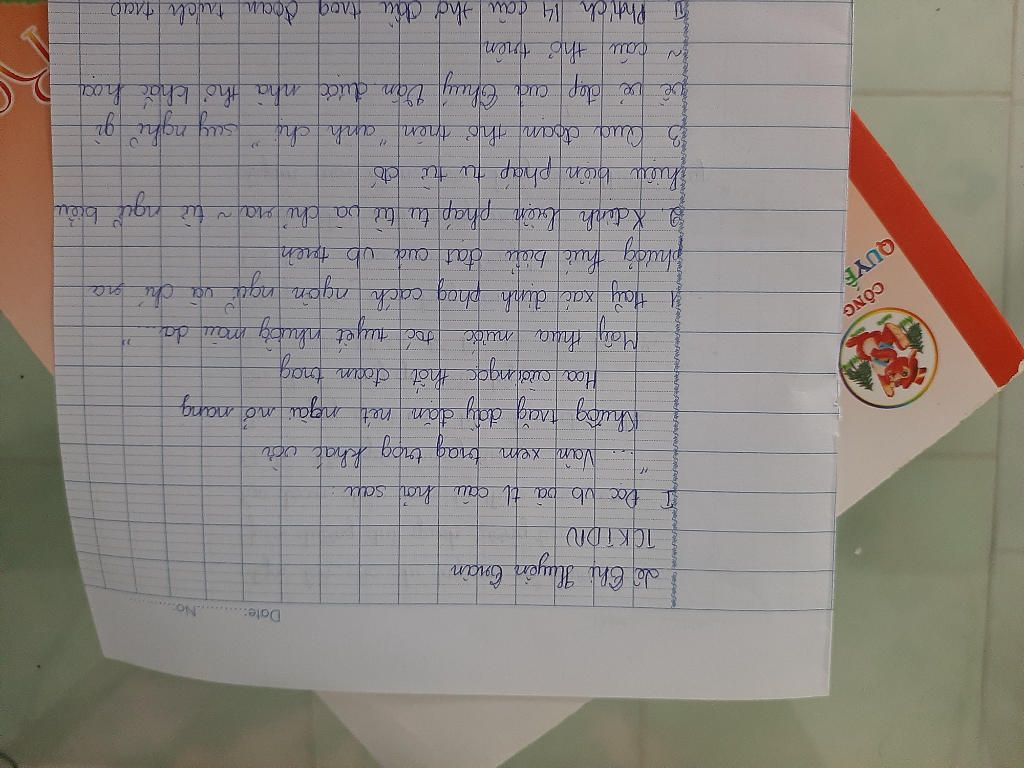 Date:............No:............
Lê Thị Huyền Trân
TCKTDN
I Đọc vb và tl câu hỏi sau:
"... Vân xem trag trọg khát vời
Khuôg trăg đầy đặn nét ngài nở nang
Hoa cười ngọc thốt đoan trag
Mây thua nước tóc tuyết nhườg màu da..."
1 Hãy xác định phog cách ngôn ngữ và chỉ ra
phươg thức biểu đạt của vb trên
2 Xđịnh biện pháp tu từ và chỉ ra ~ từ ngữ biểu
hiện biện pháp tu từ đó
3 Qua đoạn thơ trên "anh chị" suy nghĩ gì
về vẻ đẹp của Thuý Vân được nhà thơ khắc hoạ
~ câu thơ trên
II Phtích 14 câu thơ đầu trog đoạn trích trao
CÔNG
QUYẾ